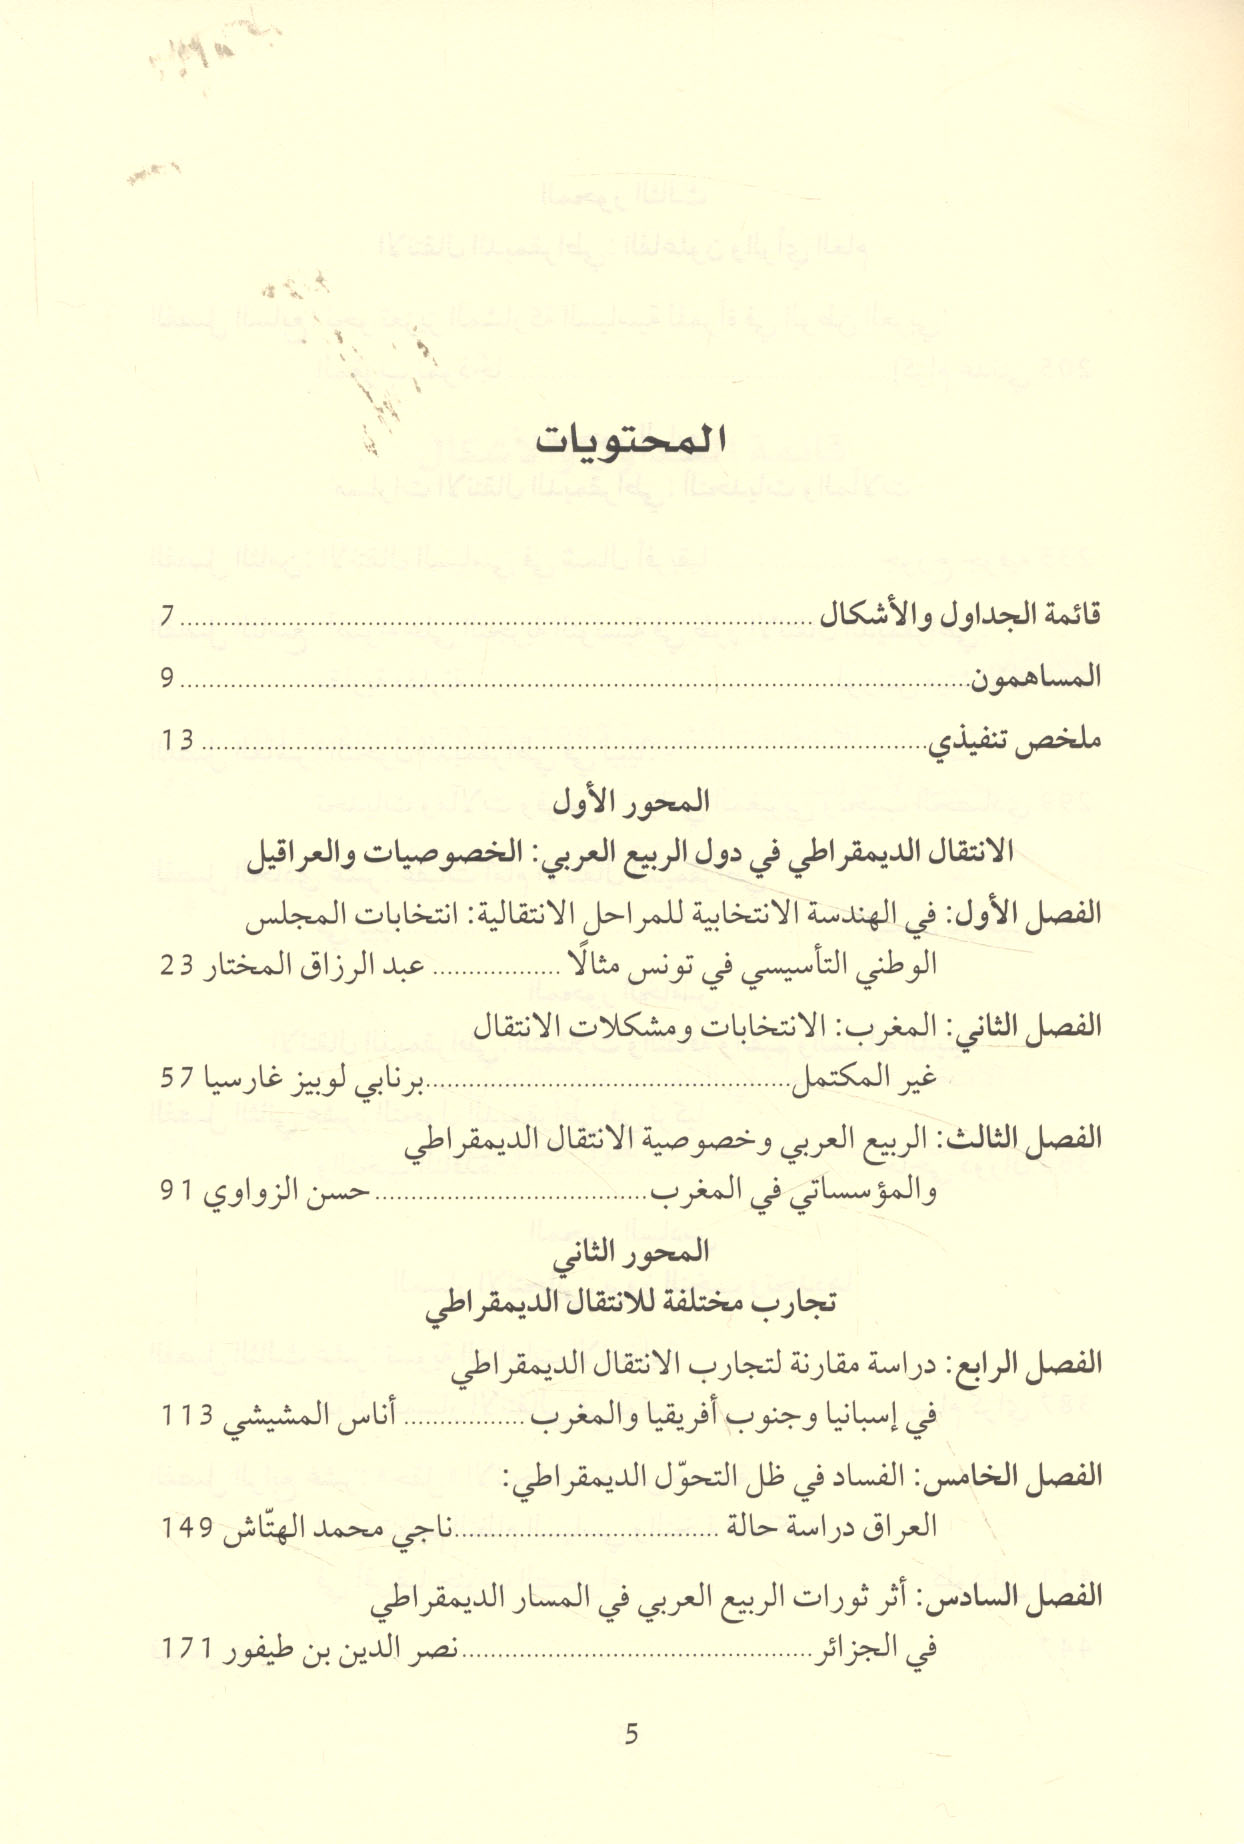 المحتويات
قائمة الجداول والأشكال ........................................ 7
المساهمون ........................................ 9
ملخص تنفيذي ........................................ 13
المحور الأول
الانتقال الديمقراطي في دول الربيع العربي: الخصوصيات والعراقيل
الفصل الأول: في الهندسة الانتخابية للمراحل الانتقالية: انتخابات المجلس
الوطني التأسيسي في تونس مثالًا .................. عبد الرزاق المختار 23
الفصل الثاني: المغرب: الانتخابات ومشكلات الانتقال
غير المكتمل ........................................ برنابي لوبيز غارسيا 57
الفصل الثالث: الربيع العربي وخصوصية الانتقال الديمقراطي
والمؤسساتي في المغرب .............................. حسن الزواوي 91
المحور الثاني
تجارب مختلفة للانتقال الديمقراطي
الفصل الرابع: دراسة مقارنة لتجارب الانتقال الديمقراطي
في إسبانيا وجنوب أفريقيا والمغرب ................ أناس المشيشي 113
الفصل الخامس: الفساد في ظل التحوّل الديمقراطي:
العراق دراسة حالة .............................. ناجي محمد الهتّاش 149
الفصل السادس: أثر ثورات الربيع العربي في المسار الديمقراطي
في الجزائر ........................................ نصر الدين بن طيفور 171
5